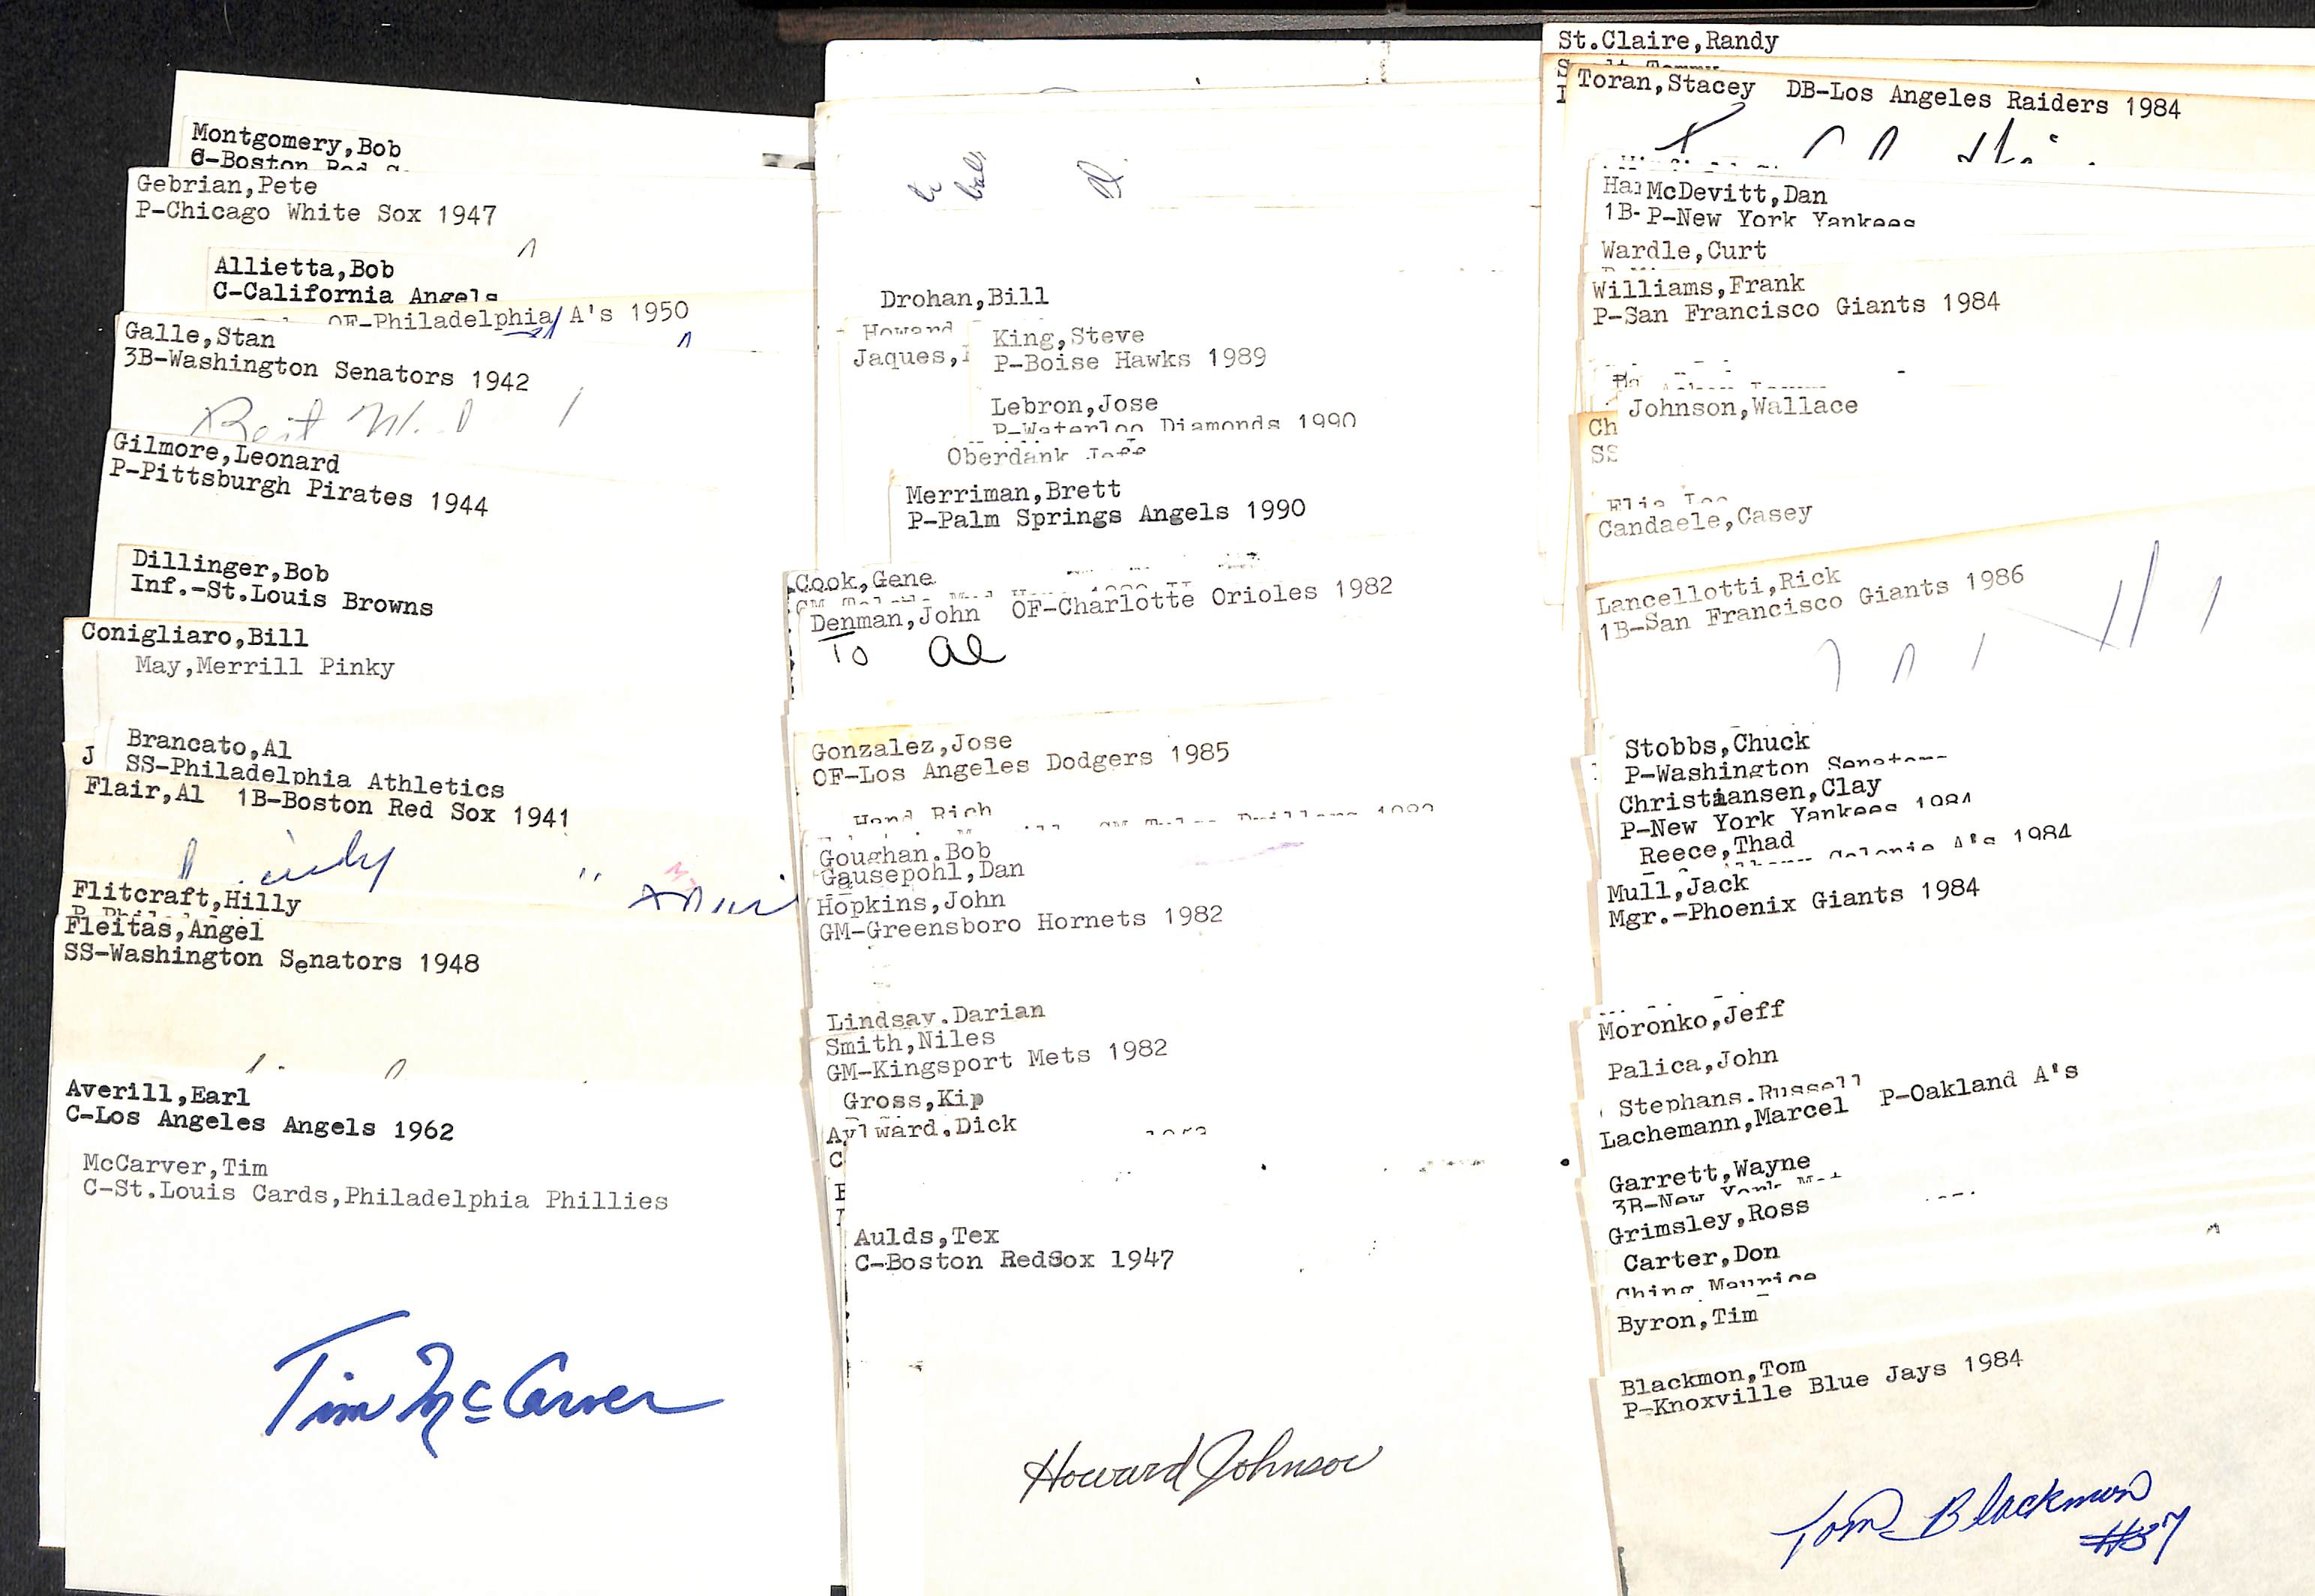 Montgomery,Bob
Gebrian,Pete
P-Chicago White Sox 1947
Allietta,Bob
C-California Angels
OF-Philadelphia A's 1950
Galle,Stan
3B-Washington Senators 1942
Best
Gilmore,Leonard
P-Pittsburgh Pirates 1944
Dillinger,Bob
Inf.-St.Louis Browns
Conigliaro,Bill
May,Merrill Pinky
Brancato,Al
J SS-Philadelphia Athletics
Flair,Al 1B-Boston Red Sox 1941
Flitcraft,Hilly
Fleitas,Angel
SS-Washington Senators 1948
Averill,Earl
C-Los Angeles Angels 1962
McCarver,Tim
C-St.Louis Cards,Philadelphia Phillies
Tim McCarver
Drohan,Bill
Howard
King,Steve
Jaques,
P-Boise Hawks 1989
Lebron,Jose
P-Waterloo Diamonds 1990
Oberdank Jeff
Merriman,Brett
P-Palm Springs Angels 1990
Cook,Gene
Denman,John OF-Charlotte Orioles 1982
To Al
Gonzalez,Jose
OF-Los Angeles Dodgers 1985
Hand Rich
Goughan.Bob
Gausepohl,Dan
Hopkins,John
GM-Greensboro Hornets 1982
Lindsay.Darian
Smith,Niles
GM-Kingsport Mets 1982
Gross,Kip
Aylward.Dick
C
Aulds,Tex
C-Boston RedSox 1947
Howard Johnson
St.Claire,Randy
Toran,Stacey DB-Los Angeles Raiders 1984
McDevitt,Dan
1B- P-New York Yankees
Wardle,Curt
Williams,Frank
P-San Francisco Giants 1984
Johnson,Wallace
Ch
SS
Candaele,Casey
Lancellotti,Rick
1B-San Francisco Giants 1986
Stobbs,Chuck
P-Washington Senators
Christiansen,Clay
P-New York Yankees 1984
Reece,Thad
Colonie A's 1984
Mull,Jack
Mgr.-Phoenix Giants 1984
Moronko,Jeff
Palica,John
Stephans.Russell
Lachemann,Marcel P-Oakland A's
Garrett,Wayne
3B-New York
Grimsley,Ross
Carter,Don
Ching Maurice
Byron,Tim
Blackmon,Tom
P-Knoxville Blue Jays 1984
Tom Blackmon
#37